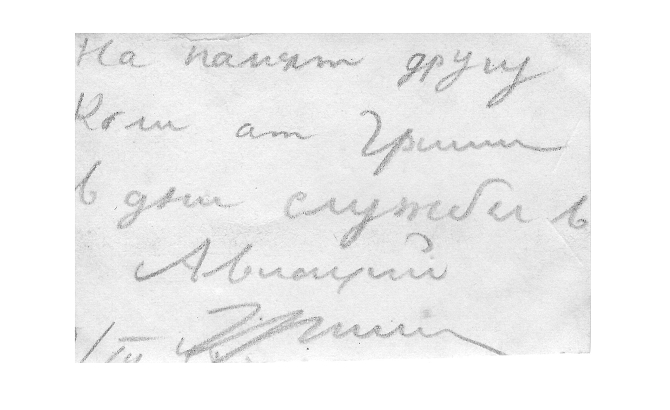 На памят другу
Коли от Гриши
в дни службы в
Авиации